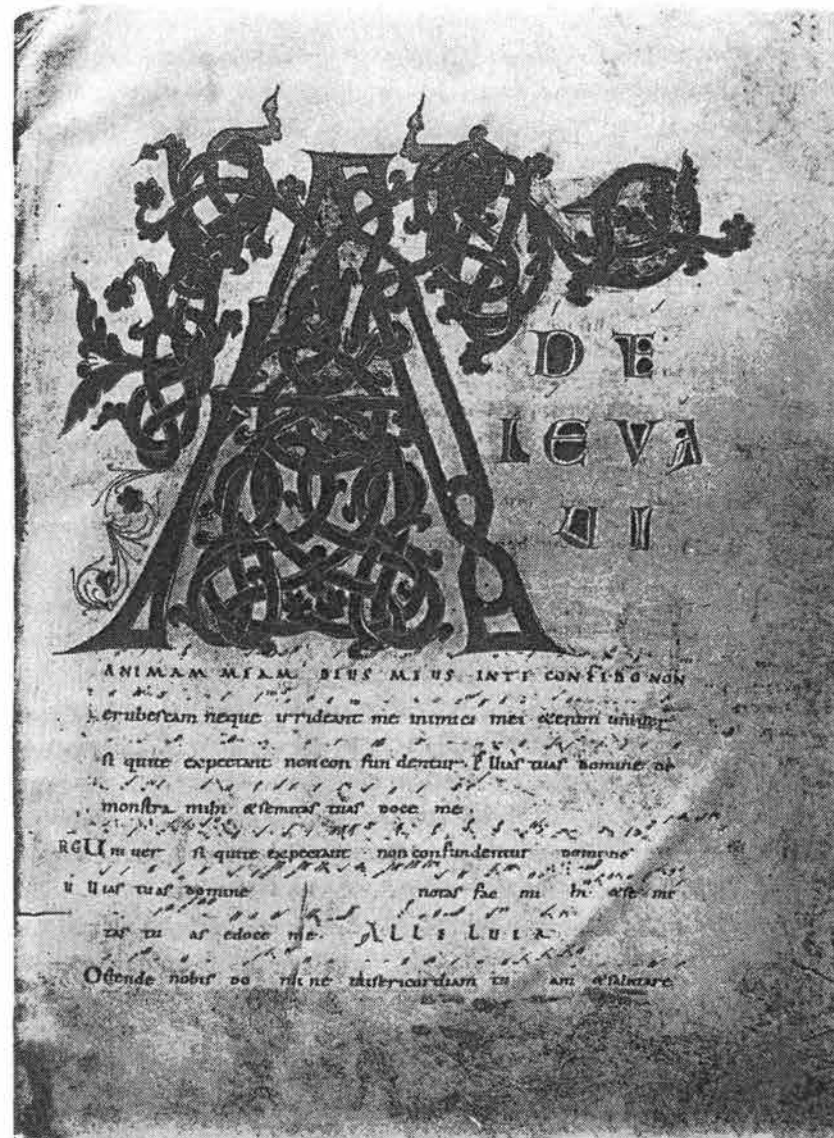 A D TE
LEVA
VI
ANIMAM MEAM DEUS MEUS INTE CONFIDO NON
erubescam neque irrideant me inimici mei &enim univer
si quite expectant noncon fundentur. Uias tuas domine de
monstra mihi &semitas tuas doce me.
RG Uni uer si quite expectant non confundentur domine
U Uias tuas domine notas fac mi hi &se mi
tas tu as edoce me. ALLELUIA
Ostende nobis do mi ne misericordiam tu am &salutare